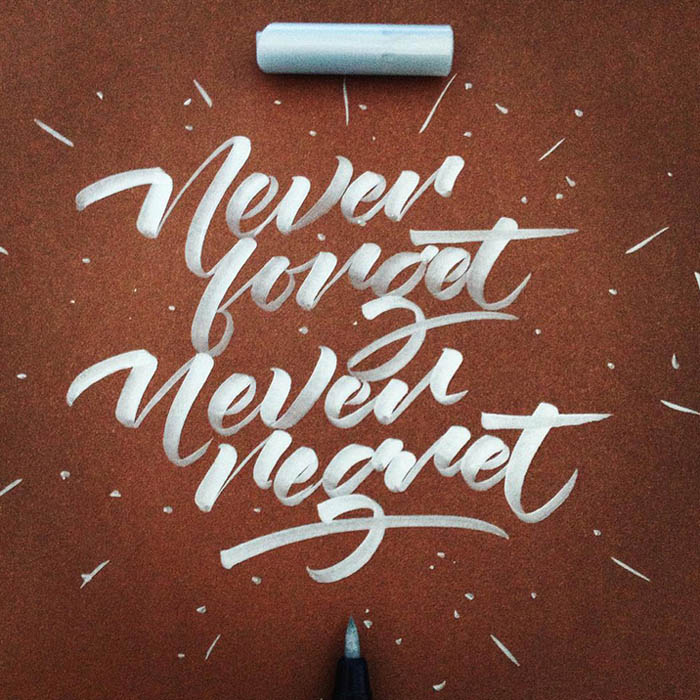 Never
forget
Never
regret